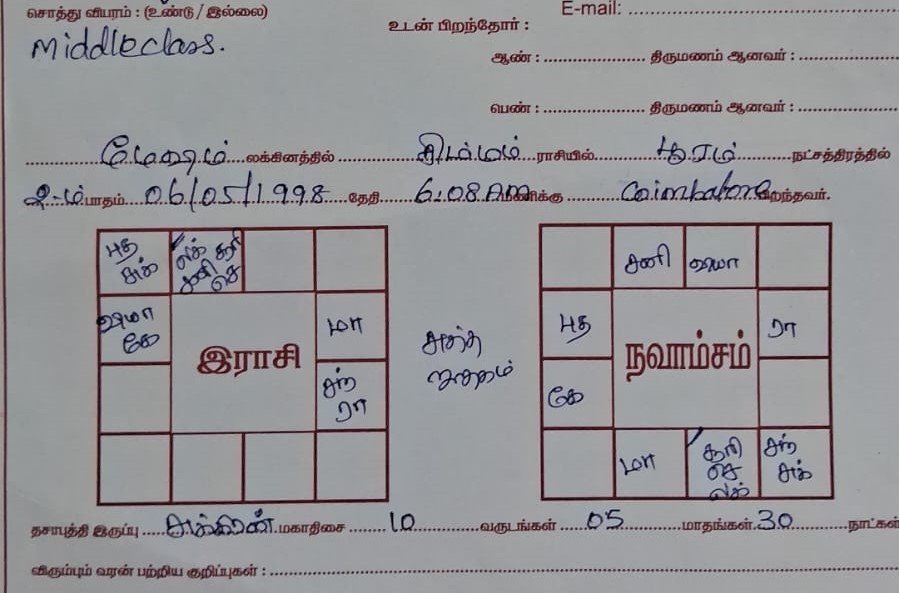 சொத்து விபரம் : (உண்டு / இல்லை)
E-mail:
Middleclass.
உடன் பிறந்தோர் :
ஆண் : திருமணம் ஆனவர் :
பெண் : திருமணம் ஆனவர் :
மேஷம் லக்கினத்தில் சிம்மம் ராசியில் பூரம் நட்சத்திரத்தில்
2-ம் பாதம் 06/05/1998 தேதி 6.08 AM மணிக்கு Coimbatore பிறந்தவர்.
புத லக் சூரி
சுக் சனி செ
சனி
மா
கே மா
புத ரா
இராசி
நவாம்சம்
சந் ரா
கே
மா சூரி செ லக் சந் சுக்
தசாபுத்தி இருப்பு சுக்கிரன் மகாதிசை 10 வருடங்கள் 05 மாதங்கள் 30 நாட்கள்
விரும்பும் வரன் பற்றிய குறிப்புகள் :